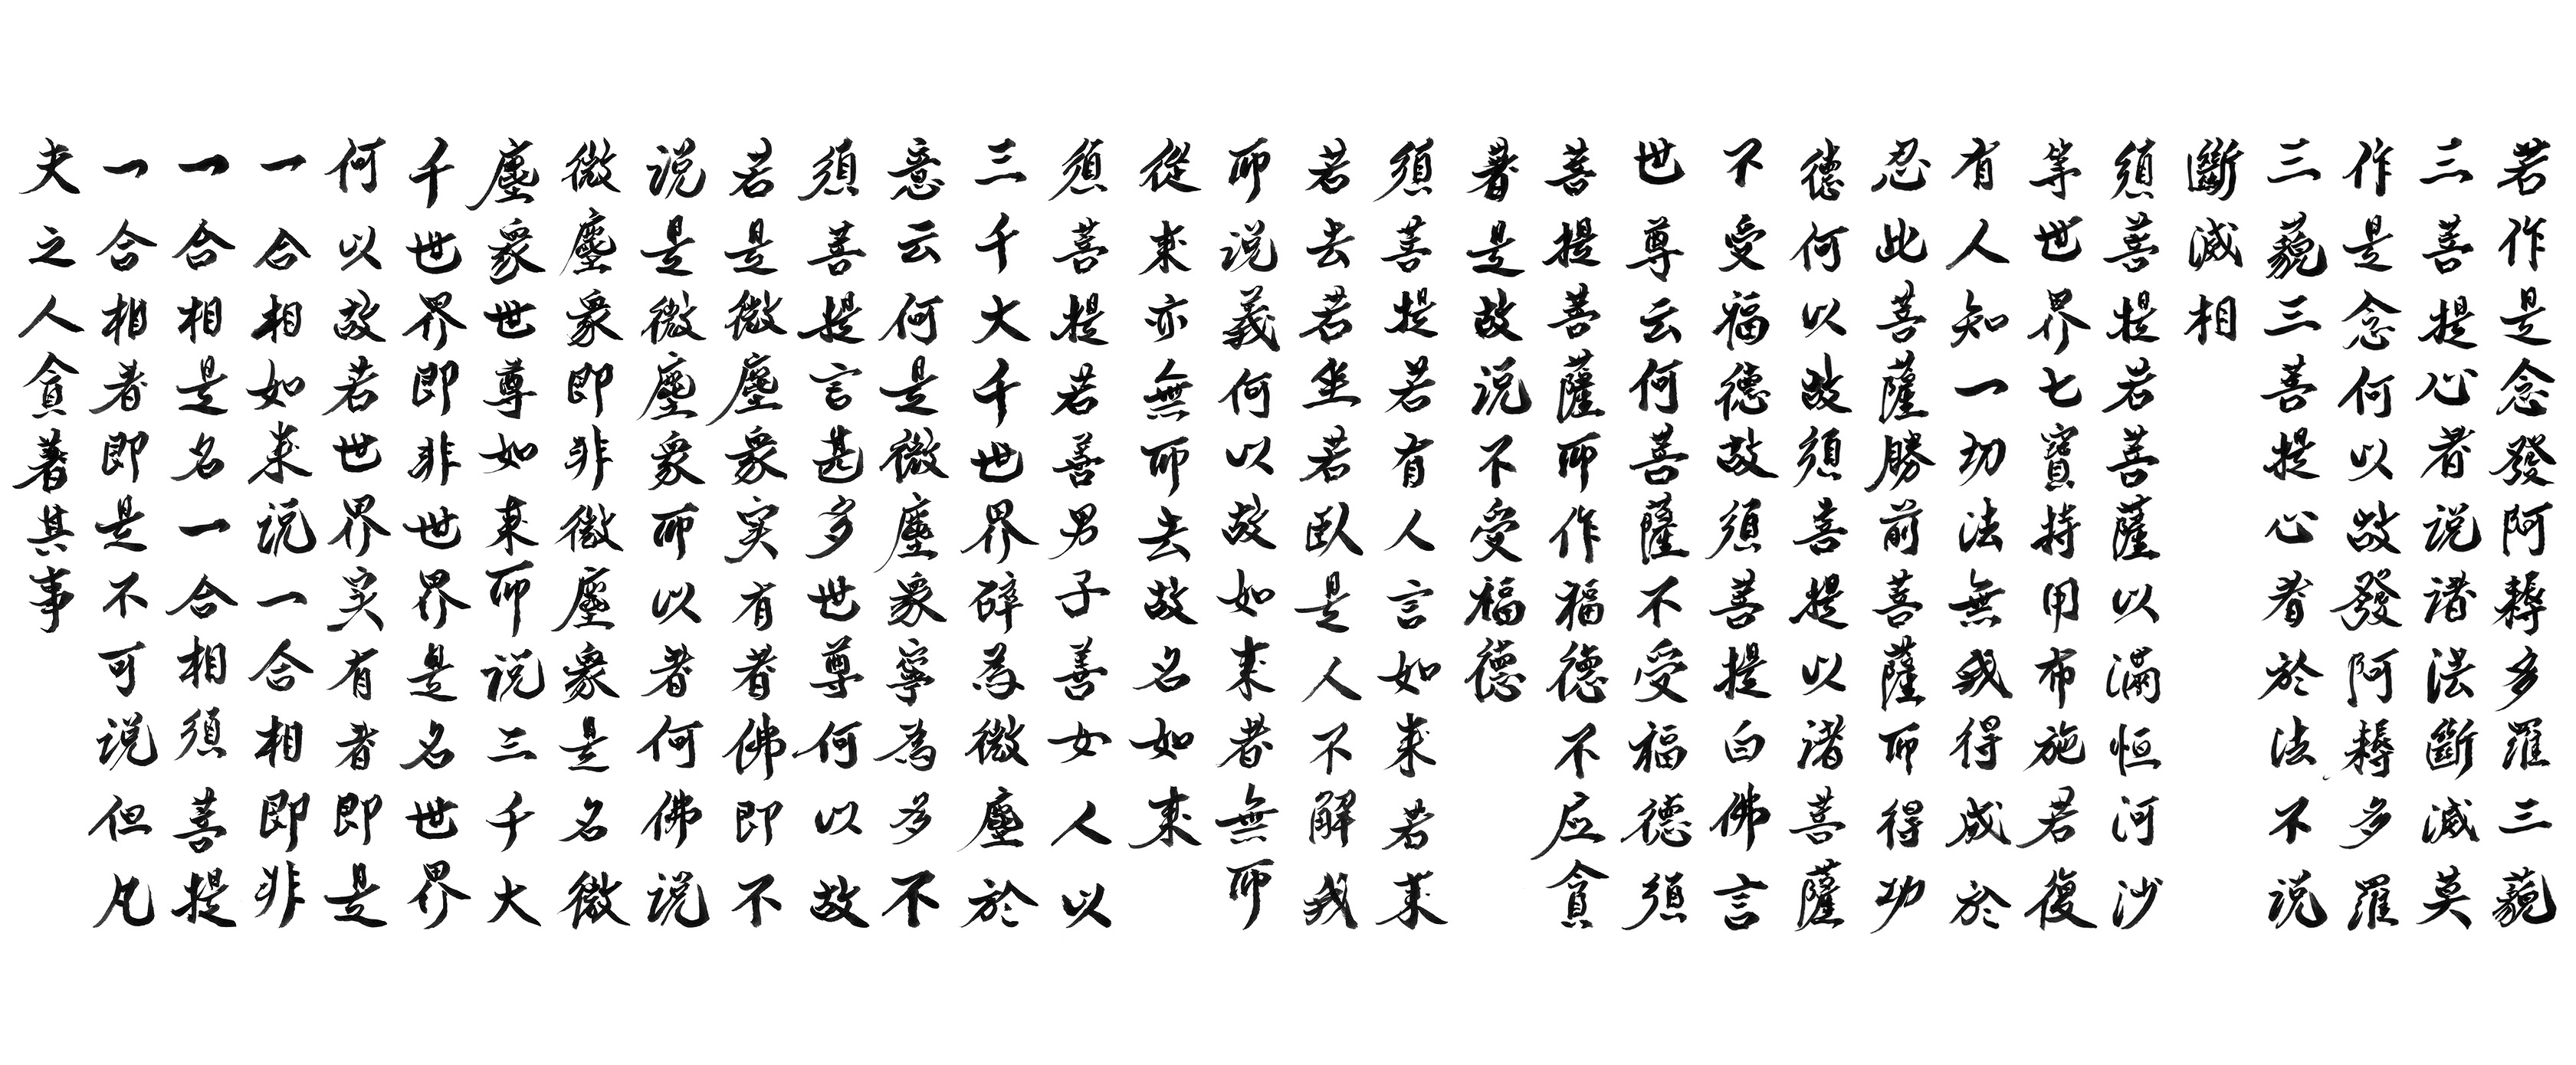 若作是念發阿耨多羅三藐
三菩提心者说諸法斷滅莫
作是念何以故發阿耨多羅
三藐三菩提心者於法不说
斷滅相
須菩提若菩薩以滿恒河沙
等世界七寶持用布施若復
有人知一切法無我得成於
忍此菩薩勝前菩薩所得功
德何以故須菩提以諸菩薩
不受福德故須菩提白佛言
世尊云何菩薩不受福德須
菩提菩薩所作福德不应貪
著是故说不受福德
須菩提若有人言如来若来
若去若坐若臥是人不解我
所说義何以故如来者無所
從来亦無所去故名如来
須菩提若善男子善女人以
三千大千世界碎為微塵於
意云何是微塵衆寧為多不
須菩提言甚多世尊何以故
若是微塵衆实有者佛即不
说是微塵衆所以者何佛说
微塵衆即非微塵衆是名微
塵衆世尊如来所说三千大
千世界即非世界是名世界
何以故若世界实有者即是
一合相如来说一合相即非
一合相是名一合相須菩提
一合相者即是不可说但凡
夫之人貪著其事